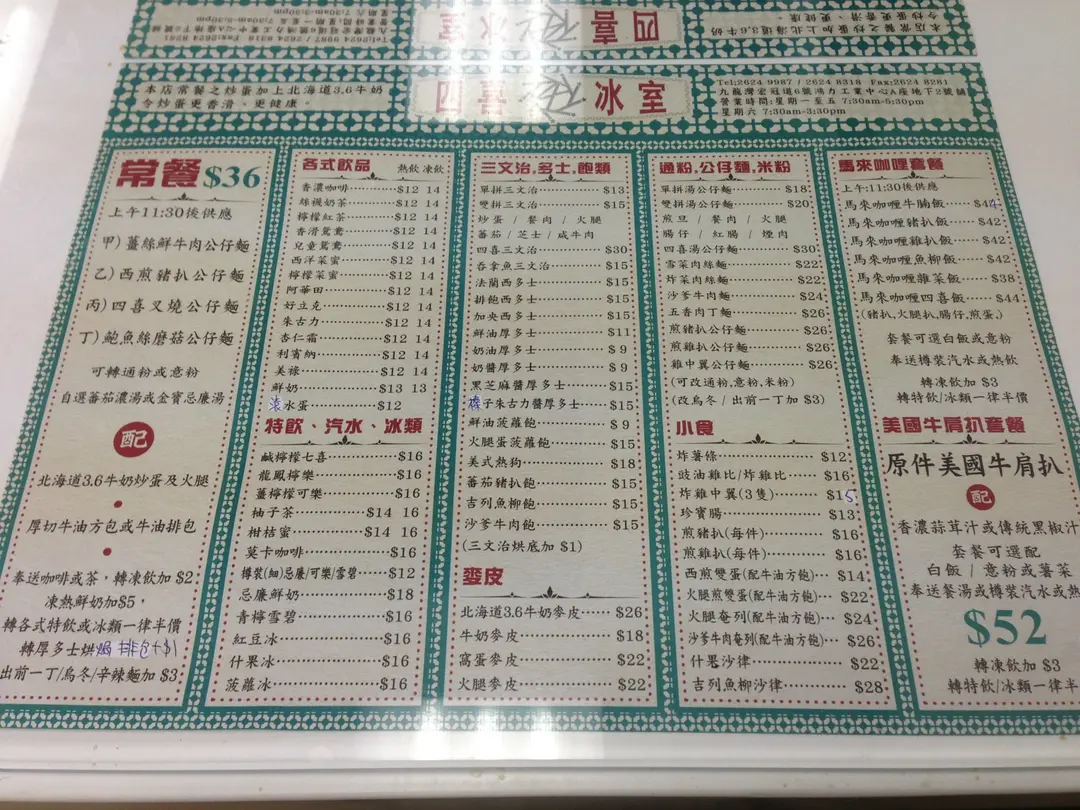 本店常餐之炒蛋加上北海道3.6牛奶
令炒蛋更香滑、更健康。
四喜冰室
Tel:2624 9987 / 2624 8318 Fax:2624 8281
九龍灣宏冠道6號鴻力工業中心A座地下2號舖
營業時間:星期一至五 7:30am-5:30pm
星期六 7:30am-3:30pm
常餐$36
上午11:30後供應
甲)薑絲鮮牛肉公仔麵
乙)西煎豬扒公仔麵
丙)四喜叉燒公仔麵
丁)鮑魚絲磨菇公仔麵
可轉通粉或意粉
自選蕃茄濃湯或金寶忌廉湯
配
北海道3.6牛奶炒蛋及火腿
厚切牛油方包或牛油排包
奉送咖啡或茶,轉凍飲加 $2,
凍熱鮮奶加$5,
轉各式特飲或冰類一律半價
轉厚多士烘 排包+$1
出前一丁/烏冬/辛辣麵加 $3
各式飲品 熱飲 凍飲
香濃咖啡 $12 14
絲襪奶茶 $12 14
檸檬紅茶 $12 14
香滑鴛鴦 $12 14
兒童鴛鴦 $12 14
西洋菜蜜 $12 14
檸檬菜蜜 $12 14
阿華田 $12 14
好立克 $12 14
朱古力 $12 14
杏仁霜 $12 14
利賓納 $12 14
美祿 $12 14
鮮奶 $13 13
滾水蛋 $12
特飲、汽水、冰類
鹹檸檬七喜 $16
龍鳳檸樂 $16
薑檸檬可樂 $16
柚子茶 $14 16
柑桔蜜 $14 16
莫卡咖啡 $16
樽裝(細)忌廉/可樂/雪碧 $12
忌廉鮮奶 $18
青檸雪碧 $16
紅豆冰 $16
什果冰 $16
菠蘿冰 $16
三文治,多士,飽類
單拼三文治 $13
雙拼三文治 $15
炒蛋 / 餐肉 / 火腿
蕃茄 / 芝士 / 咸牛肉
四喜三文治 $30
吞拿魚三文治 $15
法蘭西多士 $15
排飽西多士 $15
加央西多士 $15
鮮油厚多士 $11
奶油厚多士 $ 9
奶醬厚多士 $ 9
黑芝麻醬厚多士 $15
榛子朱古力醬厚多士 $15
鮮油菠蘿飽 $ 9
火腿蛋菠蘿飽 $15
美式熱狗 $15
蕃茄豬扒飽 $15
吉列魚柳飽 $15
沙爹牛肉飽 $15
(三文治烘底加 $1)
麥皮
北海道3.6牛奶麥皮 $26
牛奶麥皮 $18
窩蛋麥皮 $22
火腿麥皮 $22
通粉,公仔麵,米粉
單拼湯公仔麵 $18
雙拼湯公仔麵 $20
煎旦 / 餐肉 / 火腿
腸仔 / 紅腸 / 煙肉
四喜湯公仔麵 $30
雪菜肉絲麵 $22
炸菜肉絲麵 $22
沙爹牛肉麵 $24
五香肉丁麵 $26
煎豬扒公仔麵 $26
煎雞扒公仔麵 $26
雞中翼公仔麵 $26
(可改通粉,意粉,米粉)
(改烏冬 / 出前一丁加 $3)
小食
炸薯條 $12
豉油雞比/炸雞比 $16
炸雞中翼(3隻) $15
珍寶腸 $13
煎豬扒(每件) $16
煎雞扒(每件) $16
西煎雙蛋(配牛油方飽) $14
火腿煎雙蛋(配牛油方飽) $22
火腿奄列(配牛油方飽) $24
沙爹牛肉奄列(配牛油方飽) $26
什果沙律 $22
吉列魚柳沙律 $28
馬來咖喱套餐
上午11:30後供應
馬來咖喱牛腩飯 $44
馬來咖喱豬扒飯 $42
馬來咖喱雞扒飯 $42
馬來咖喱魚柳飯 $42
馬來咖喱雜菜飯 $38
馬來咖喱四喜飯 $44
(豬扒,火腿扒,腸仔,煎蛋,)
套餐可選白飯或意粉
奉送樽裝汽水或熱飲
轉凍飲加 $3
轉特飲/冰類一律半價
美國牛肩扒套餐
原件美國牛肩扒
配
香濃蒜茸汁或傳統黑椒汁
套餐可選配
白飯 / 意粉或薯菜
奉送餐湯或樽裝汽水或熱
$52
轉凍飲加 $3
轉特飲/冰類一律半